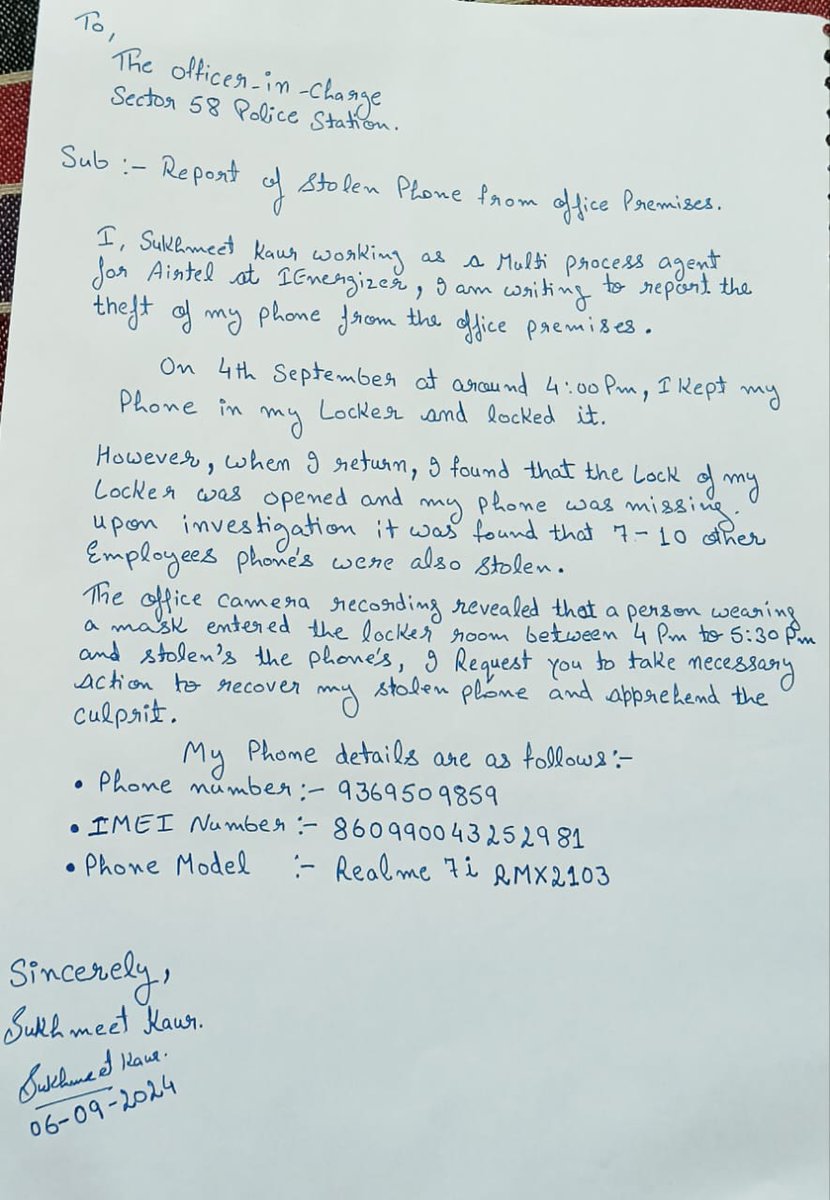 To,
The officer-in-Charge
Sector 58 Police Station.
Sub :- Report of Stolen Phone from office Premises.
I, Sukhmeet Kaur working as a Multi process agent
for Airtel at IEnergizer, I am writing to report the
theft of my phone from the office premises.
On 4th September at around 4:00 Pm, I Kept my
Phone in my Locker and locked it.
However, when I return, I found that the Lock of my
Locker was opened and my phone was missing.
upon investigation it was found that 7-10 other
Employees phone's were also stolen.
The office camera recording revealed that a person wearing
a mask entered the locker room between 4 Pm to 5:30 Pm
and stolen's the phone's, I Request you to take necessary
action to recover my stolen phone and apprehend the
culprit.
My Phone details are as follows:-
• Phone number:- 9369509859
• IMEI Number:- 860990043252981
• Phone Model :- Realme 7i RMX2103
Sincerely,
Sukhmeet Kaur.
Sukhmeet Kaur.
06-09-2024